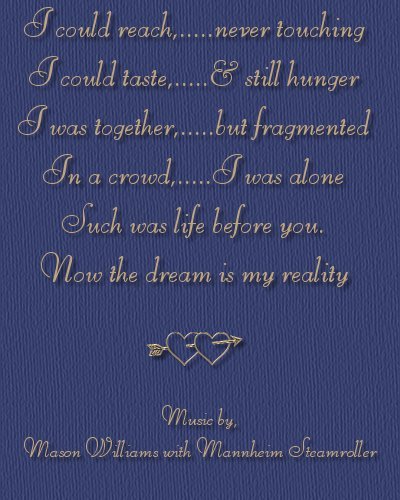 I could reach,.....never touching
I could taste,.....& still hunger
I was together,.....but fragmented
In a crowd,.....I was alone
Such was life before you.
Now the dream is my reality
Music by,
Mason Williams with Mannheim Steamroller